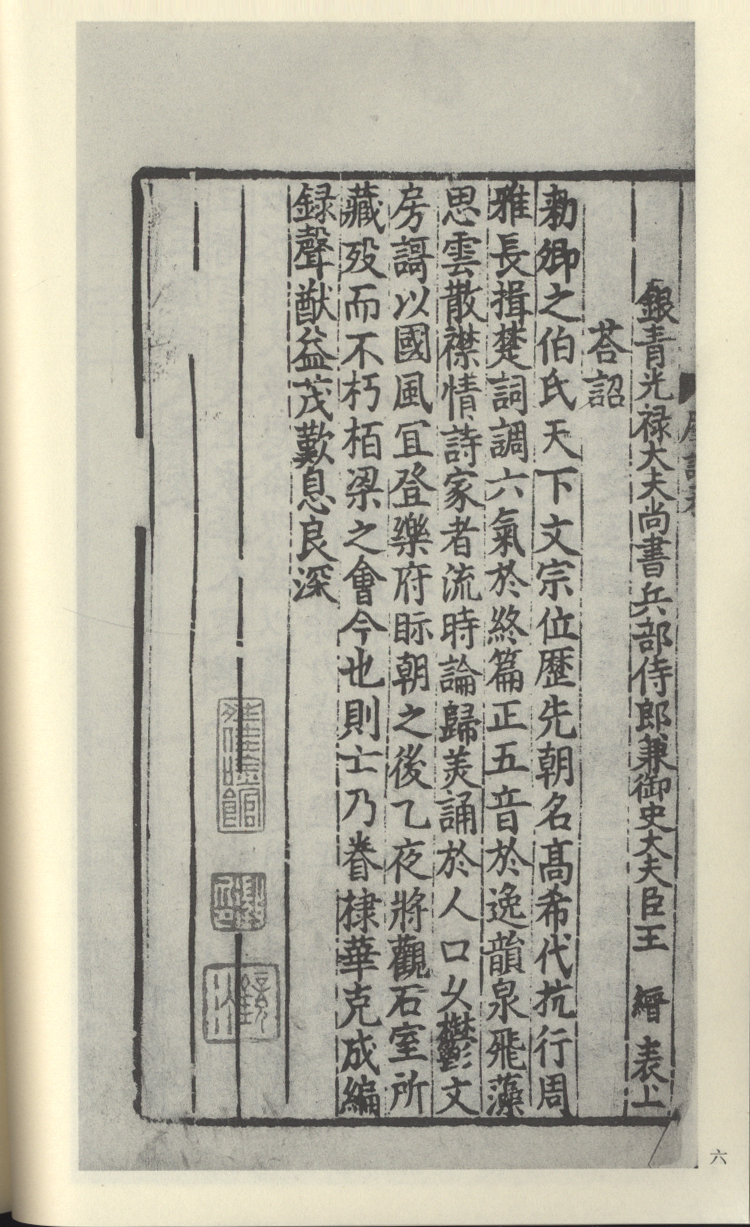 銀青光禄大夫尚書兵部侍郎兼御史大夫臣王 縉 表上
荅詔
勑卿之伯氏天下文宗位歷先朝名髙希代抗行周
雅長揖楚詞調六氣於終篇正五音於逸韻泉飛藻
思雲散襟情詩家者流時論歸美誦於人口乆欝文
房謌以國風冝登樂府眎朝之後乙夜將觀石室所
藏殁而不朽栢梁之會今也則亡乃眷棣華克成編
録聲猷益茂歎息良深
六